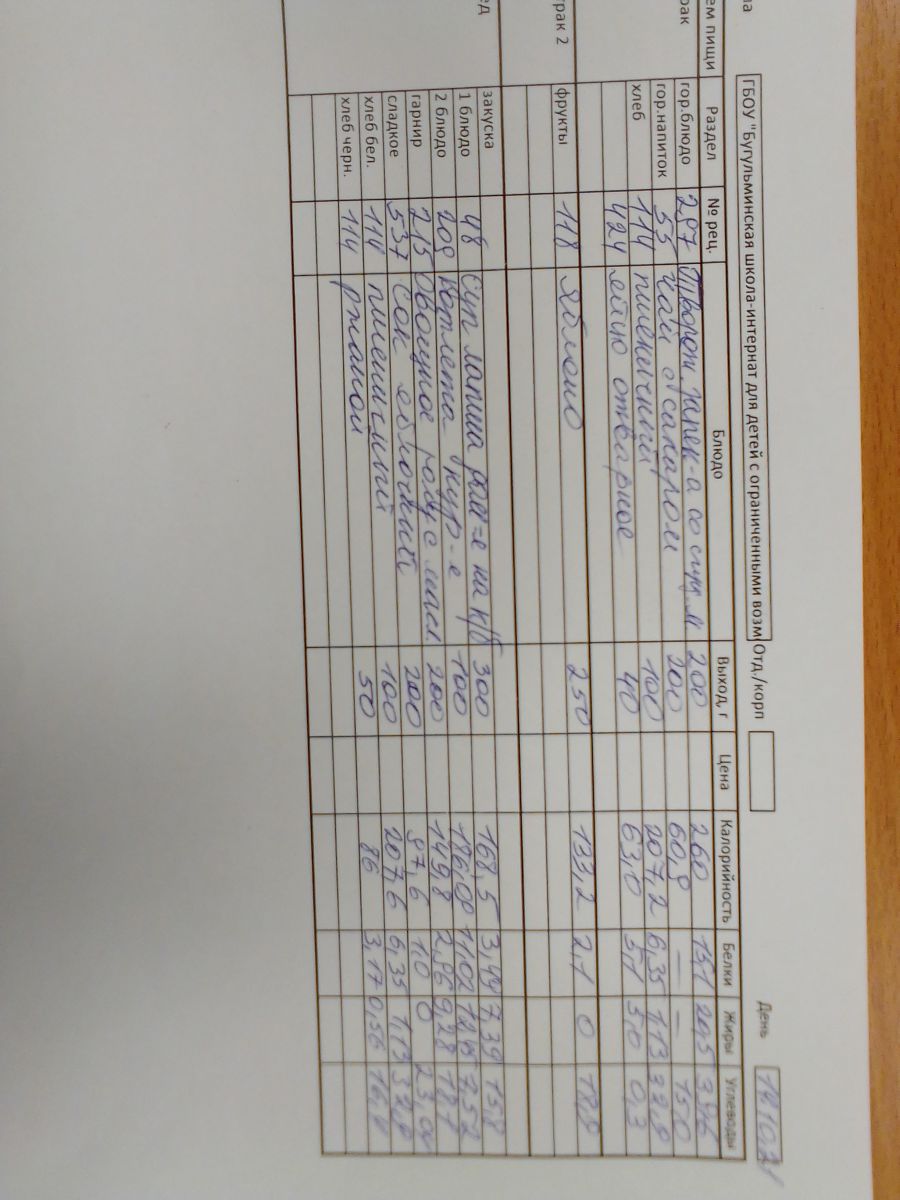 ла ГБОУ "Бугульминская школа-интернат для детей с ограниченными возм Отд./корп День
ем пищи Раздел № рец. Блюдо Выход, г Цена Калорийность Белки Жиры Углеводы
рак гор.блюдо 297 со сгущ.м 200 260
гор.напиток 55 чай с сахаром 200 60,9 — — 15,0
хлеб 114 пшеничный 100 207,2 6,35 1,13 32,9
424 яйцо отварное 40 63,0 5,1 5,0 0,3
трак 2 фрукты 118 яблоко 250 133,2 2,1 0
ед закуска
1 блюдо 48 Суп лапша на к/б 300 168,5 3,44 7,39 15,8
2 блюдо 209 Котлета кур-е 100 186,00 11,02
гарнир 215 Овощное рагу с масл. 200 149,8 2,96 9,28
сладкое 537 Сок яблочный 200 97,6 1,0 0
хлеб бел. 114 пшеничный 100 207,6 6,35 1,13 32,9
хлеб черн. 114 ржаной 50 86 3,17 0,56